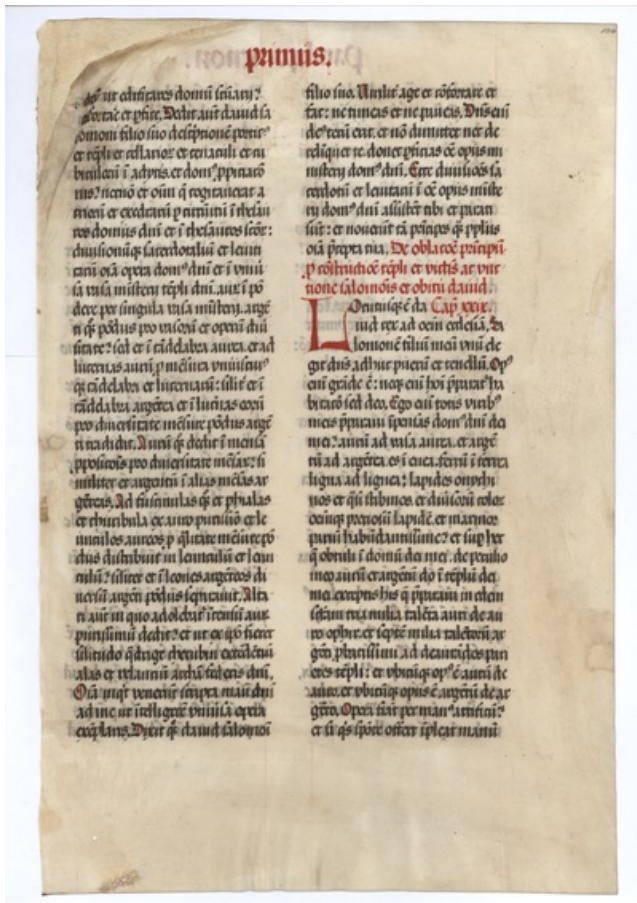 primus.
ut edificares domū scūarij:
cōfortare et ꝑfice. Dedit aūt dauid sa
lomoni filio suo descͥptionē porticꝰ
et tēpli et cellarioꝝ et cenaculi et cu
biculoꝝ ī adytis et domꝰ ꝓpiciatō
nis: necnō et oīm q̄ cogitauerat a
trioꝝ et exedraꝝ ꝑ circuitū ī thesau
ros domus dn̄i et ī thesauros scōꝝ:
diuisionūqꝫ sacerdotaliū et leuiti
caꝝ ī oīa opera domꝰ dn̄i et ī vniūsa
vasa mīsterij tēpli dn̄i. aurī ī pō
dere per singula vasa mīsterij. argē
ti qꝫ pōdus pro vasoꝝ et operū diū
sitate: sed et ī cādelabra aurea. et ad
lucernas auri ꝓ mēsura vniuscuiꝰ
qꝫ cādelabri et lucernaꝝ: silīt et ī
cādelabra argētea et ī lucernas eoꝝ
pro diuersitate mēsure pōdus argē
ti tradidit. Auꝝ qꝫ dedit ī mensas
ꝓpositōis pro diuersitate mēsaꝝ: si
militer et argentū ī alias mēsas ar
gēteas. Ad fuscinulas qꝫ et phialas
et thuribula ex auro purissimo et le
unculos aureos ꝓ qͣlitate mēsure pō
dus distribuit in leunculū et leun
culū: silīter et ī leones argēteos di
uersū argēti pōdus seꝑauit. Alta
ri aūt in quo adolet̄ īcensū auꝝ
purissimū dedit: et ut ex ip̄o fieret
silitudo qͣdrige cherubin extēdētiū
alas et velantiū archā federis dn̄i.
Oīa inqͥt venerūt scripta manu dn̄i
ad me ut ītelligerē vniūsa opera
exēplaris. Dixit qꝫ dauid salomoni
filio suo. Uirilit̄ age et cōfortare et
fac: ne timeas et ne paueas. Dn̄s enī
deꝰ tecū erit. et nō dimittet te nec de
relinquet te. donec ꝑficias oē opus mi
nisterij domꝰ dn̄i. Ecce diuisiōes sa
cerdotū et leuitaꝝ ī oē opus mīste
rij domꝰ dn̄i assistūt tibi et parati
sunt: et nouerūt tā prīcipes qͣꝫ ppl̄us
oīa p̄cepta tua. De oblatōe prīcipū
ꝓ cōstructiōe tēpli et victīs ac vnc
tione salomōis et obitu dauid
Locutusqꝫ ē da Cap̄ xxix.
uid rex ad oēm ecclesiā. Sa
lomonē filiū meū vnū ele
git deꝰ adhuc pueꝝ et tenellū. Opꝰ
enī grāde ē: neqꝫ enī hoī p̄parat̄ ha
bitatō sed deo. Ego enī totis viribꝰ
meis p̄paraui īpensas domꝰ dei
mei: auꝝ ad vasa aurea. et argē
tū ad argētea. es ī enea. ferrū ī ferrea
ligna ad lignea: lapides onychi
nos et qͣsi stibinos et diūsoꝝ coloꝝ
oēmqꝫ preciosū lapidē. et marmor
pariū habūdantissime: et suꝑ hec
q̄ obtuli ī domū dei mei. de peculio
meo auꝝ et argentū do ī tēplū dei
mei. exceptis his q̄ p̄paraui in edem
sctām. tria milia talēta auri de au
ro ophir. et septē milia talētoꝝ ar
gēti ꝓbatissimi ad deaurādos pari
etes tēpli: et vbicūqꝫ opꝰ ē auꝝ de
auro. et vbicūqꝫ opus ē argētū de ar
gēto. Opera fiāt per manꝰ artificū:
et si qͥs spōte offert īpleat manū